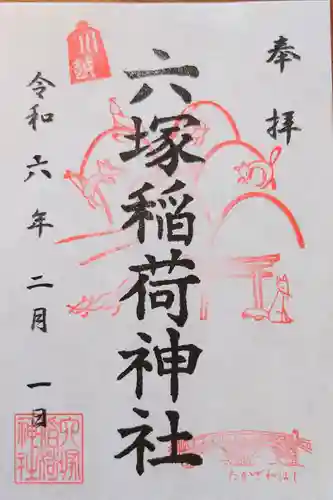 奉拝
川越
六塚稲荷神社
令和六年二月一日
六塚稲荷神社
たかざわはし